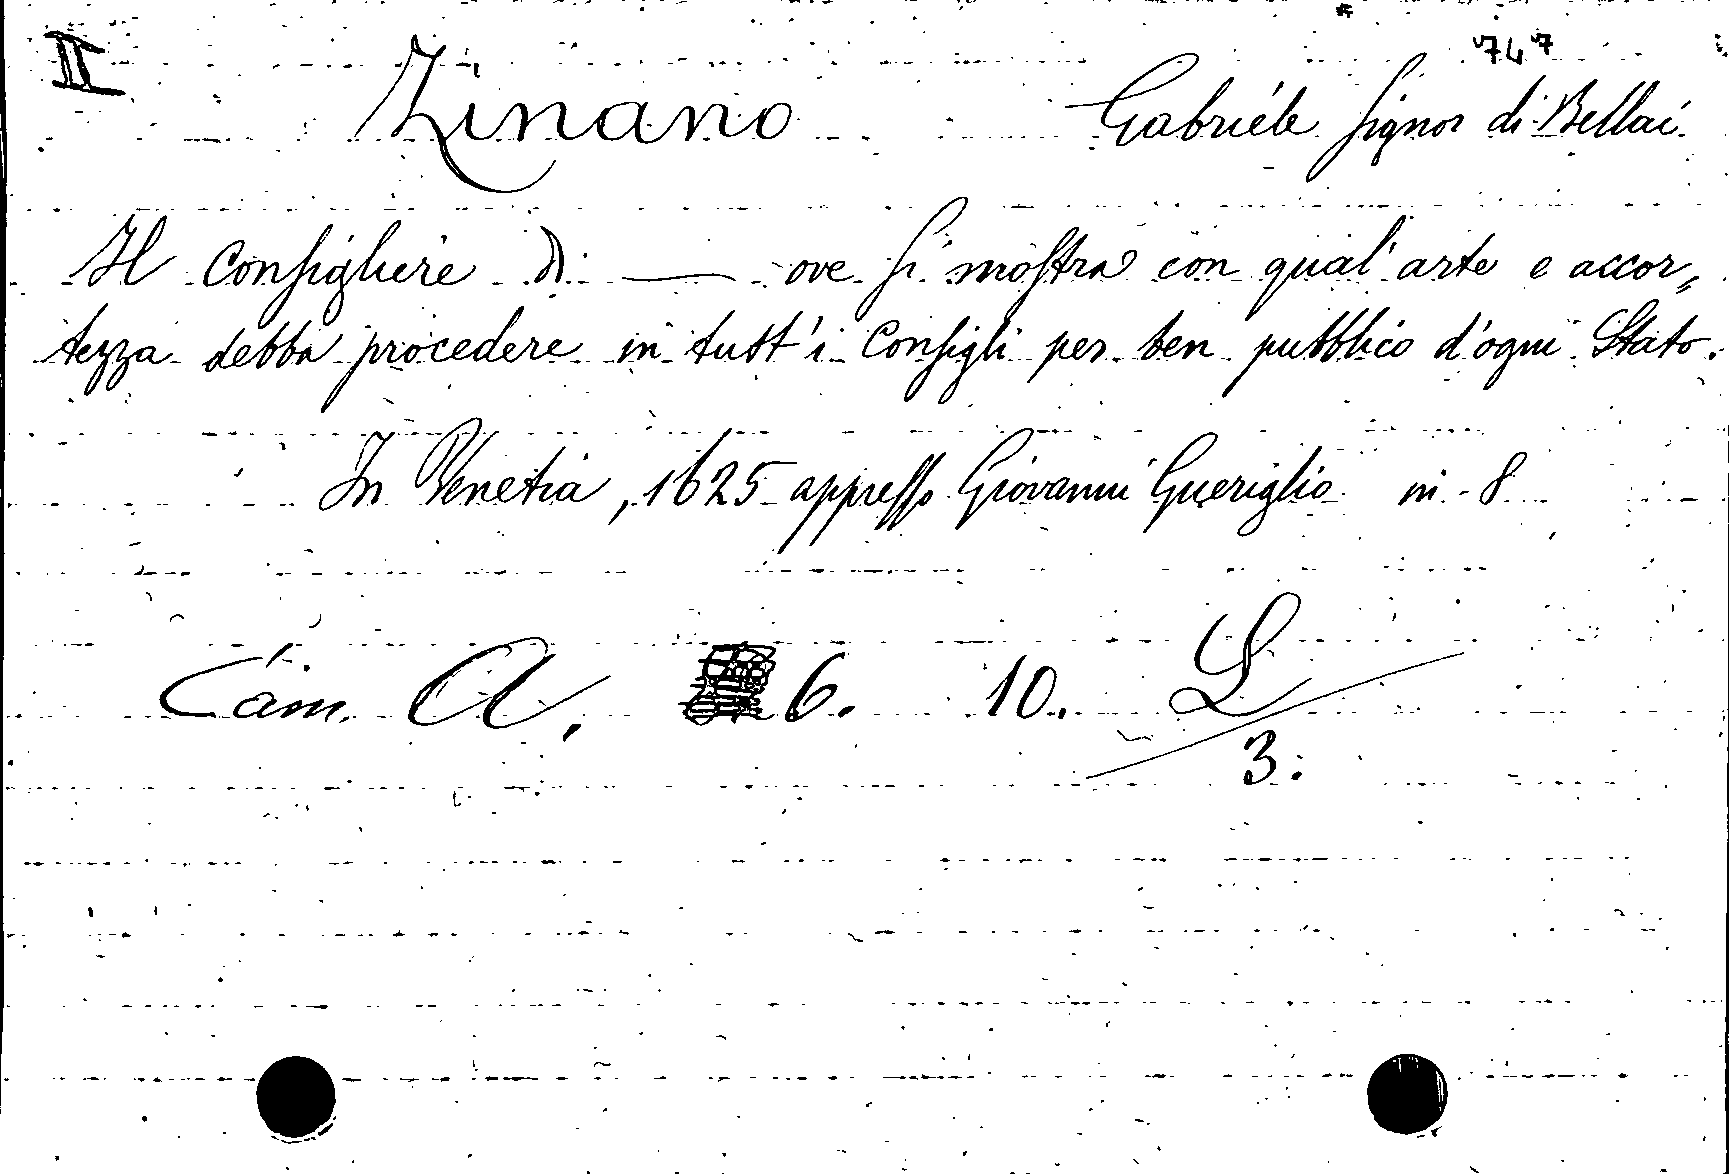 II
747
Zinano Gabriele signor di Bellai.
Il Consigliere di —— ove si mostra con qual' arte e accor„
tezza debba procedere in tutt' i Consigli per ben pubblico d'ogni Stato.
In Venetia, 1625 appresso Giovanni Gueriglio in 8
Cam. A. 6. 10. L/3.